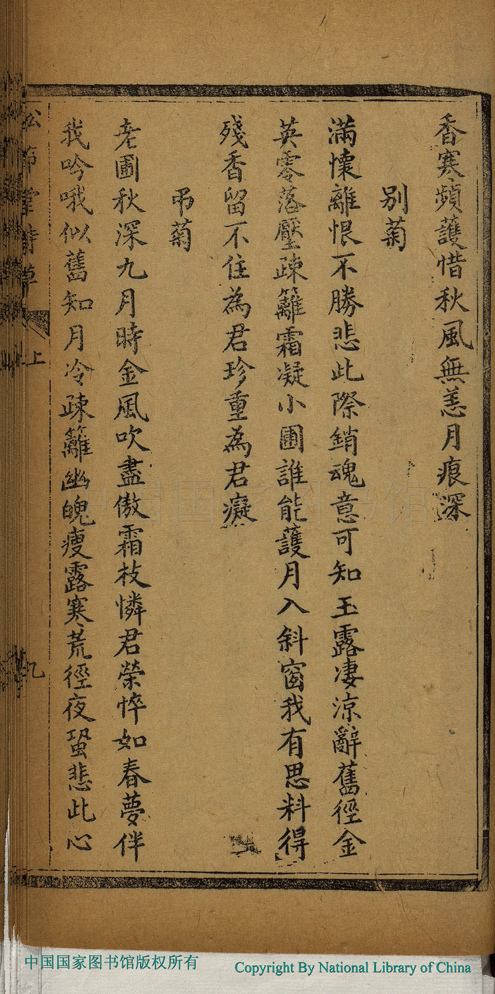 香寒頻護惜秋風無恙月痕深
別菊
滿懷離恨不勝悲此際銷魂意可知玉露凄涼辭舊徑金
英零落壓疎籬霜凝小圃誰能護月入斜窗我有思料得
殘香留不住為君珍重為君癡
弔菊
老圃秋深九月時金風吹盡傲霜枝憐君榮悴如春夢伴
我吟哦似舊知月冷疎籬幽魄瘦露寒荒徑夜蛩悲此心
上
九
中国国家图书馆版权所有
Copyright By National Library of China